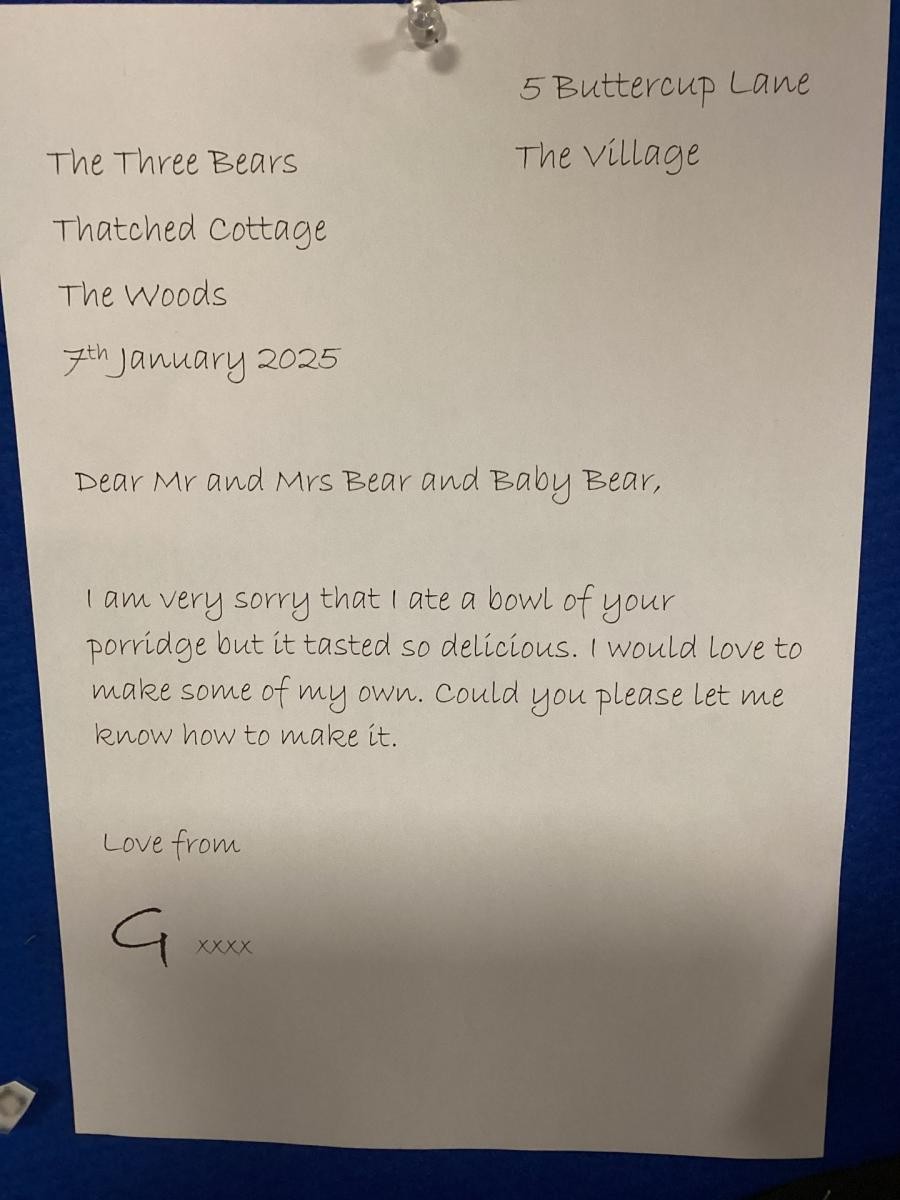 5 Buttercup Lane
The Village
The Three Bears
Thatched Cottage
The Woods
7th January 2025
Dear Mr and Mrs Bear and Baby Bear,
I am very sorry that I ate a bowl of your
porridge but it tasted so delicious. I would love to
make some of my own. Could you please let me
know how to make it.
Love from
G xxxx